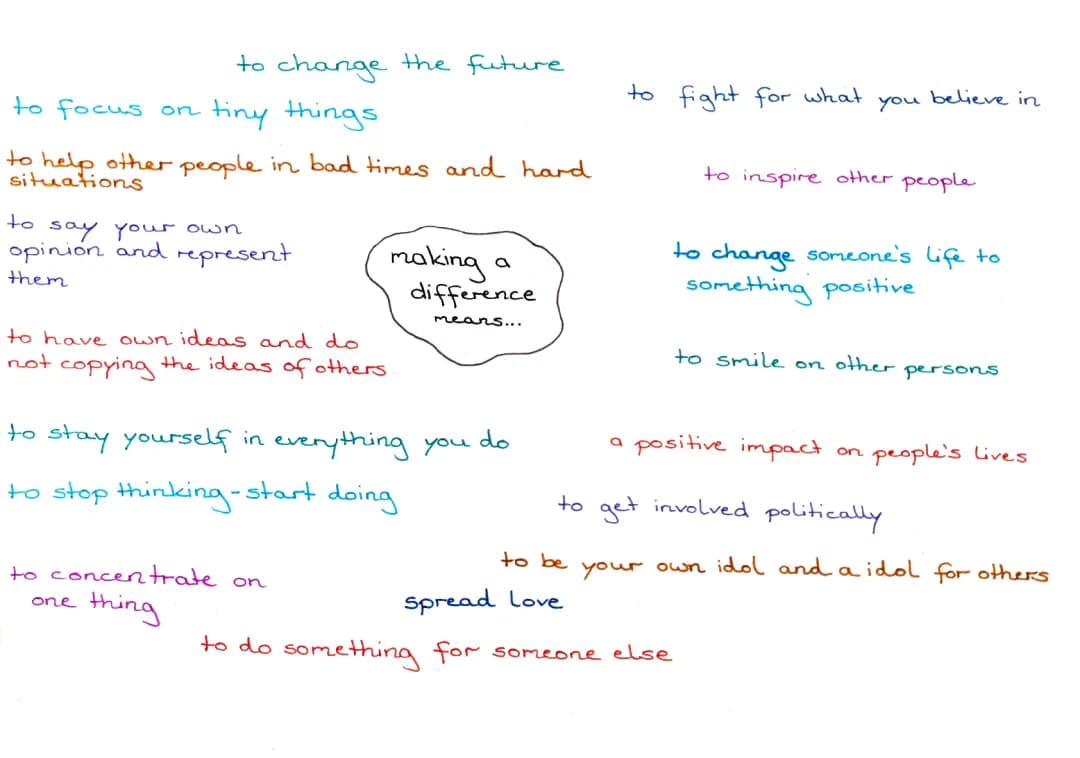 to change the future
to focus on tiny things
to fight for what you believe in
to help other people in bad times and hard
situations
to inspire other people
to say your own
opinion and represent
them
making a
difference
means...
to change someone's life to
something positive
to have own ideas and do
not copying the ideas of others
to smile on other persons
to stay yourself in everything you do
a positive impact on people's lives
to stop thinking-start doing
to get involved politically
to be your own idol and a idol for others
to concentrate on
one thing
spread love
to do something for someone else